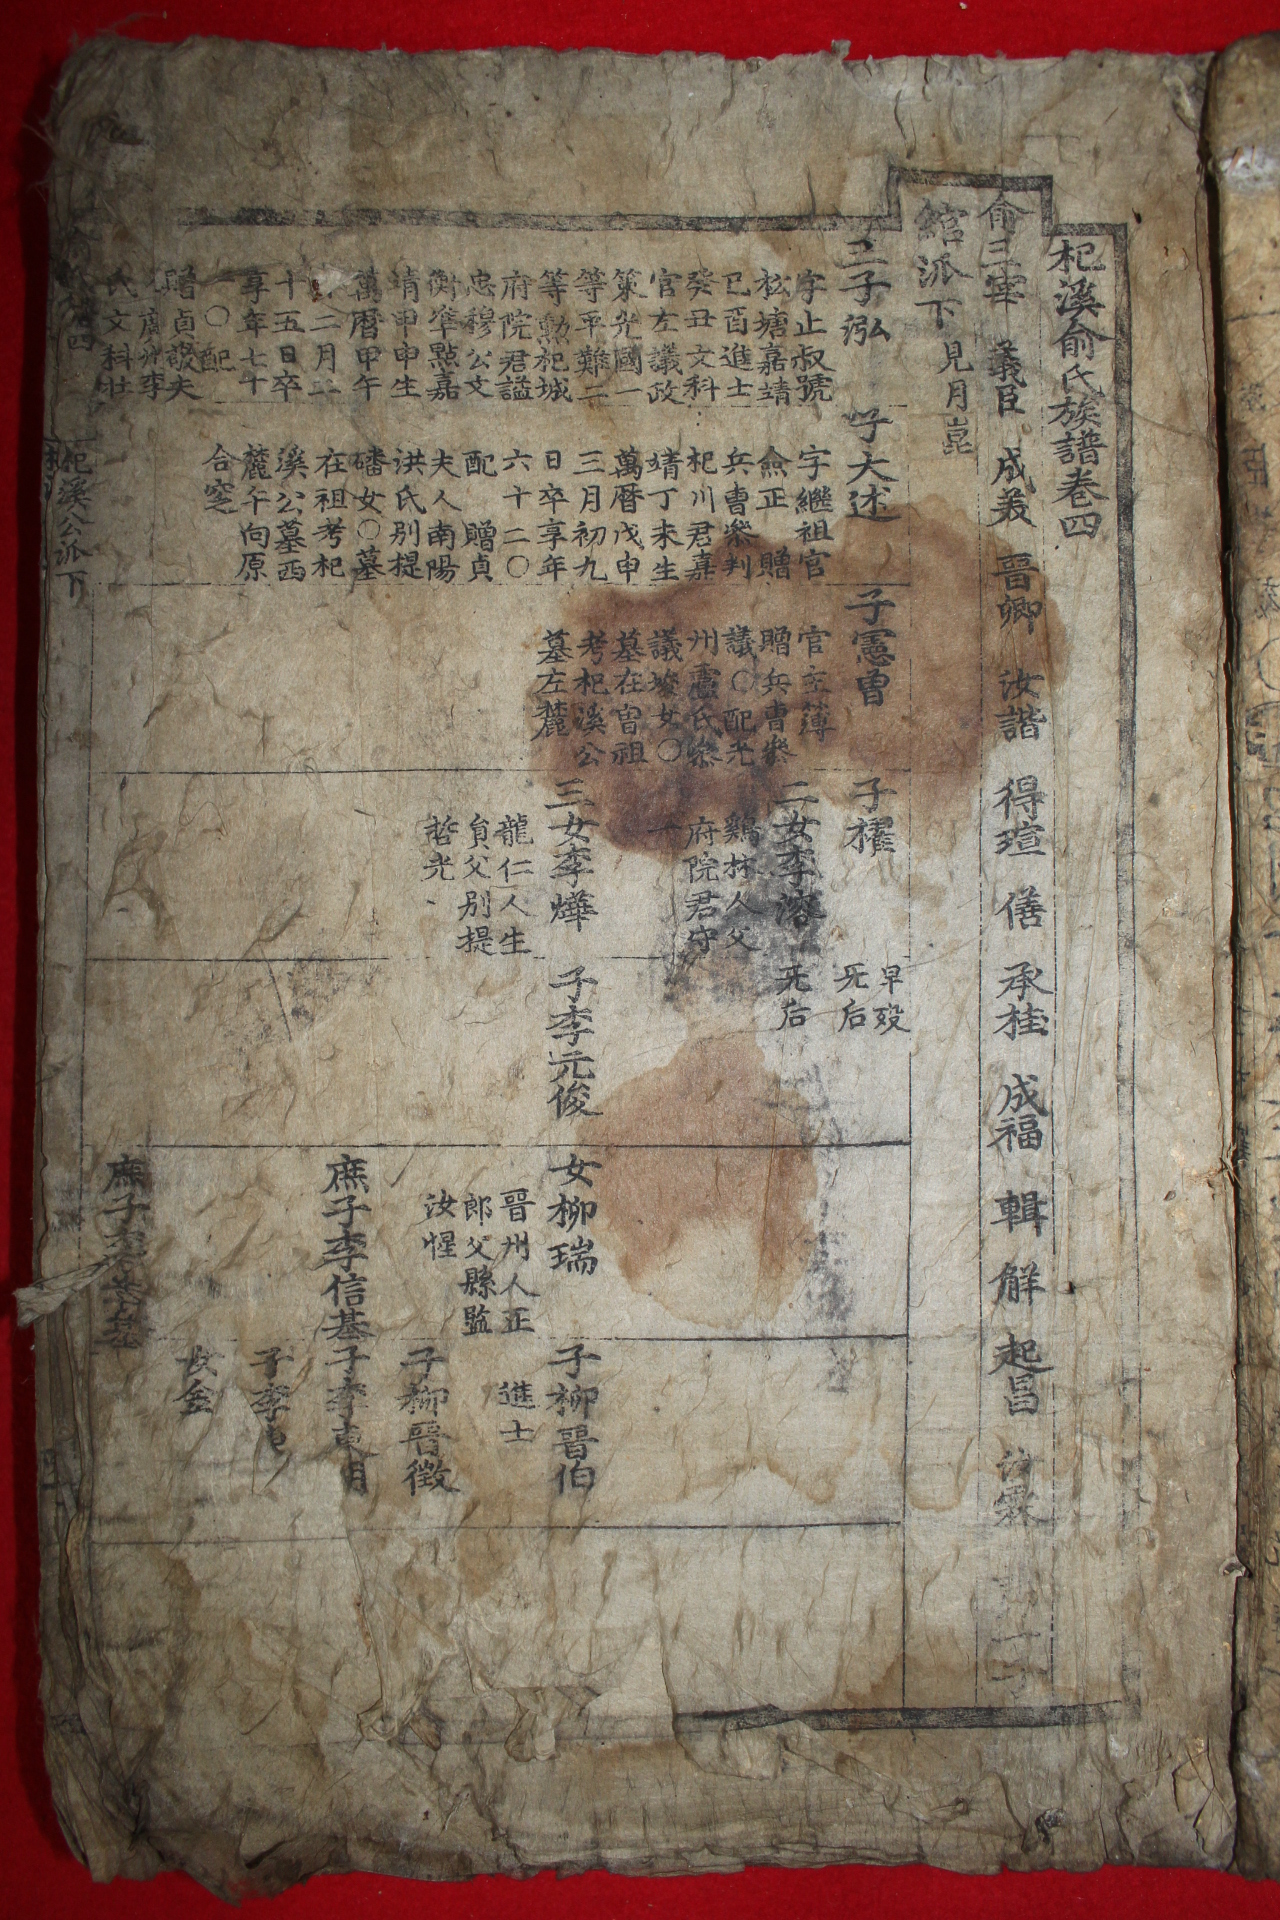 杞溪俞氏族譜卷四
俞三宰 義臣 成美 晉卿 汝諧 得瑄 僐 承桂 成福 輯 解 起昌 汝霖
綰派下 見月崑
三子泓
字止叔號
松塘嘉靖
己酉進士
癸丑文科
官左議政
策光國一
等平難二
等勳杞城
府院君諡
忠穆公文
衡準點嘉
靖甲申生
萬曆甲午
二月
十五日卒
享年七十
一〇配
贈貞敬夫
人廣州李
氏文科壯
子大述
字繼祖官
僉正 贈
兵曹參判
杞川君嘉
靖丁未生
萬曆戊申
三月初九
日卒享年
六十二〇
配 贈貞
夫人南陽
洪氏別提
磻女〇墓
在祖考杞
溪公墓西
麓午向原
合窆
子憲曾
官主簿
贈兵曹參
議〇配光
州盧氏參
議埈女〇
墓在曾祖
考杞溪公
墓左麓
子櫂
早歿
旡后
二女李溶
鷄林人父
府院君守
一
旡后
三女李燁
龍仁人生
員父別提
哲光
子李元俊
女柳瑞
晉州人正
郎父縣監
汝惺
子柳晉伯
進士
子柳晉徵
庶子李信基
子李
子李
女金
庶子李
杞溪公派下